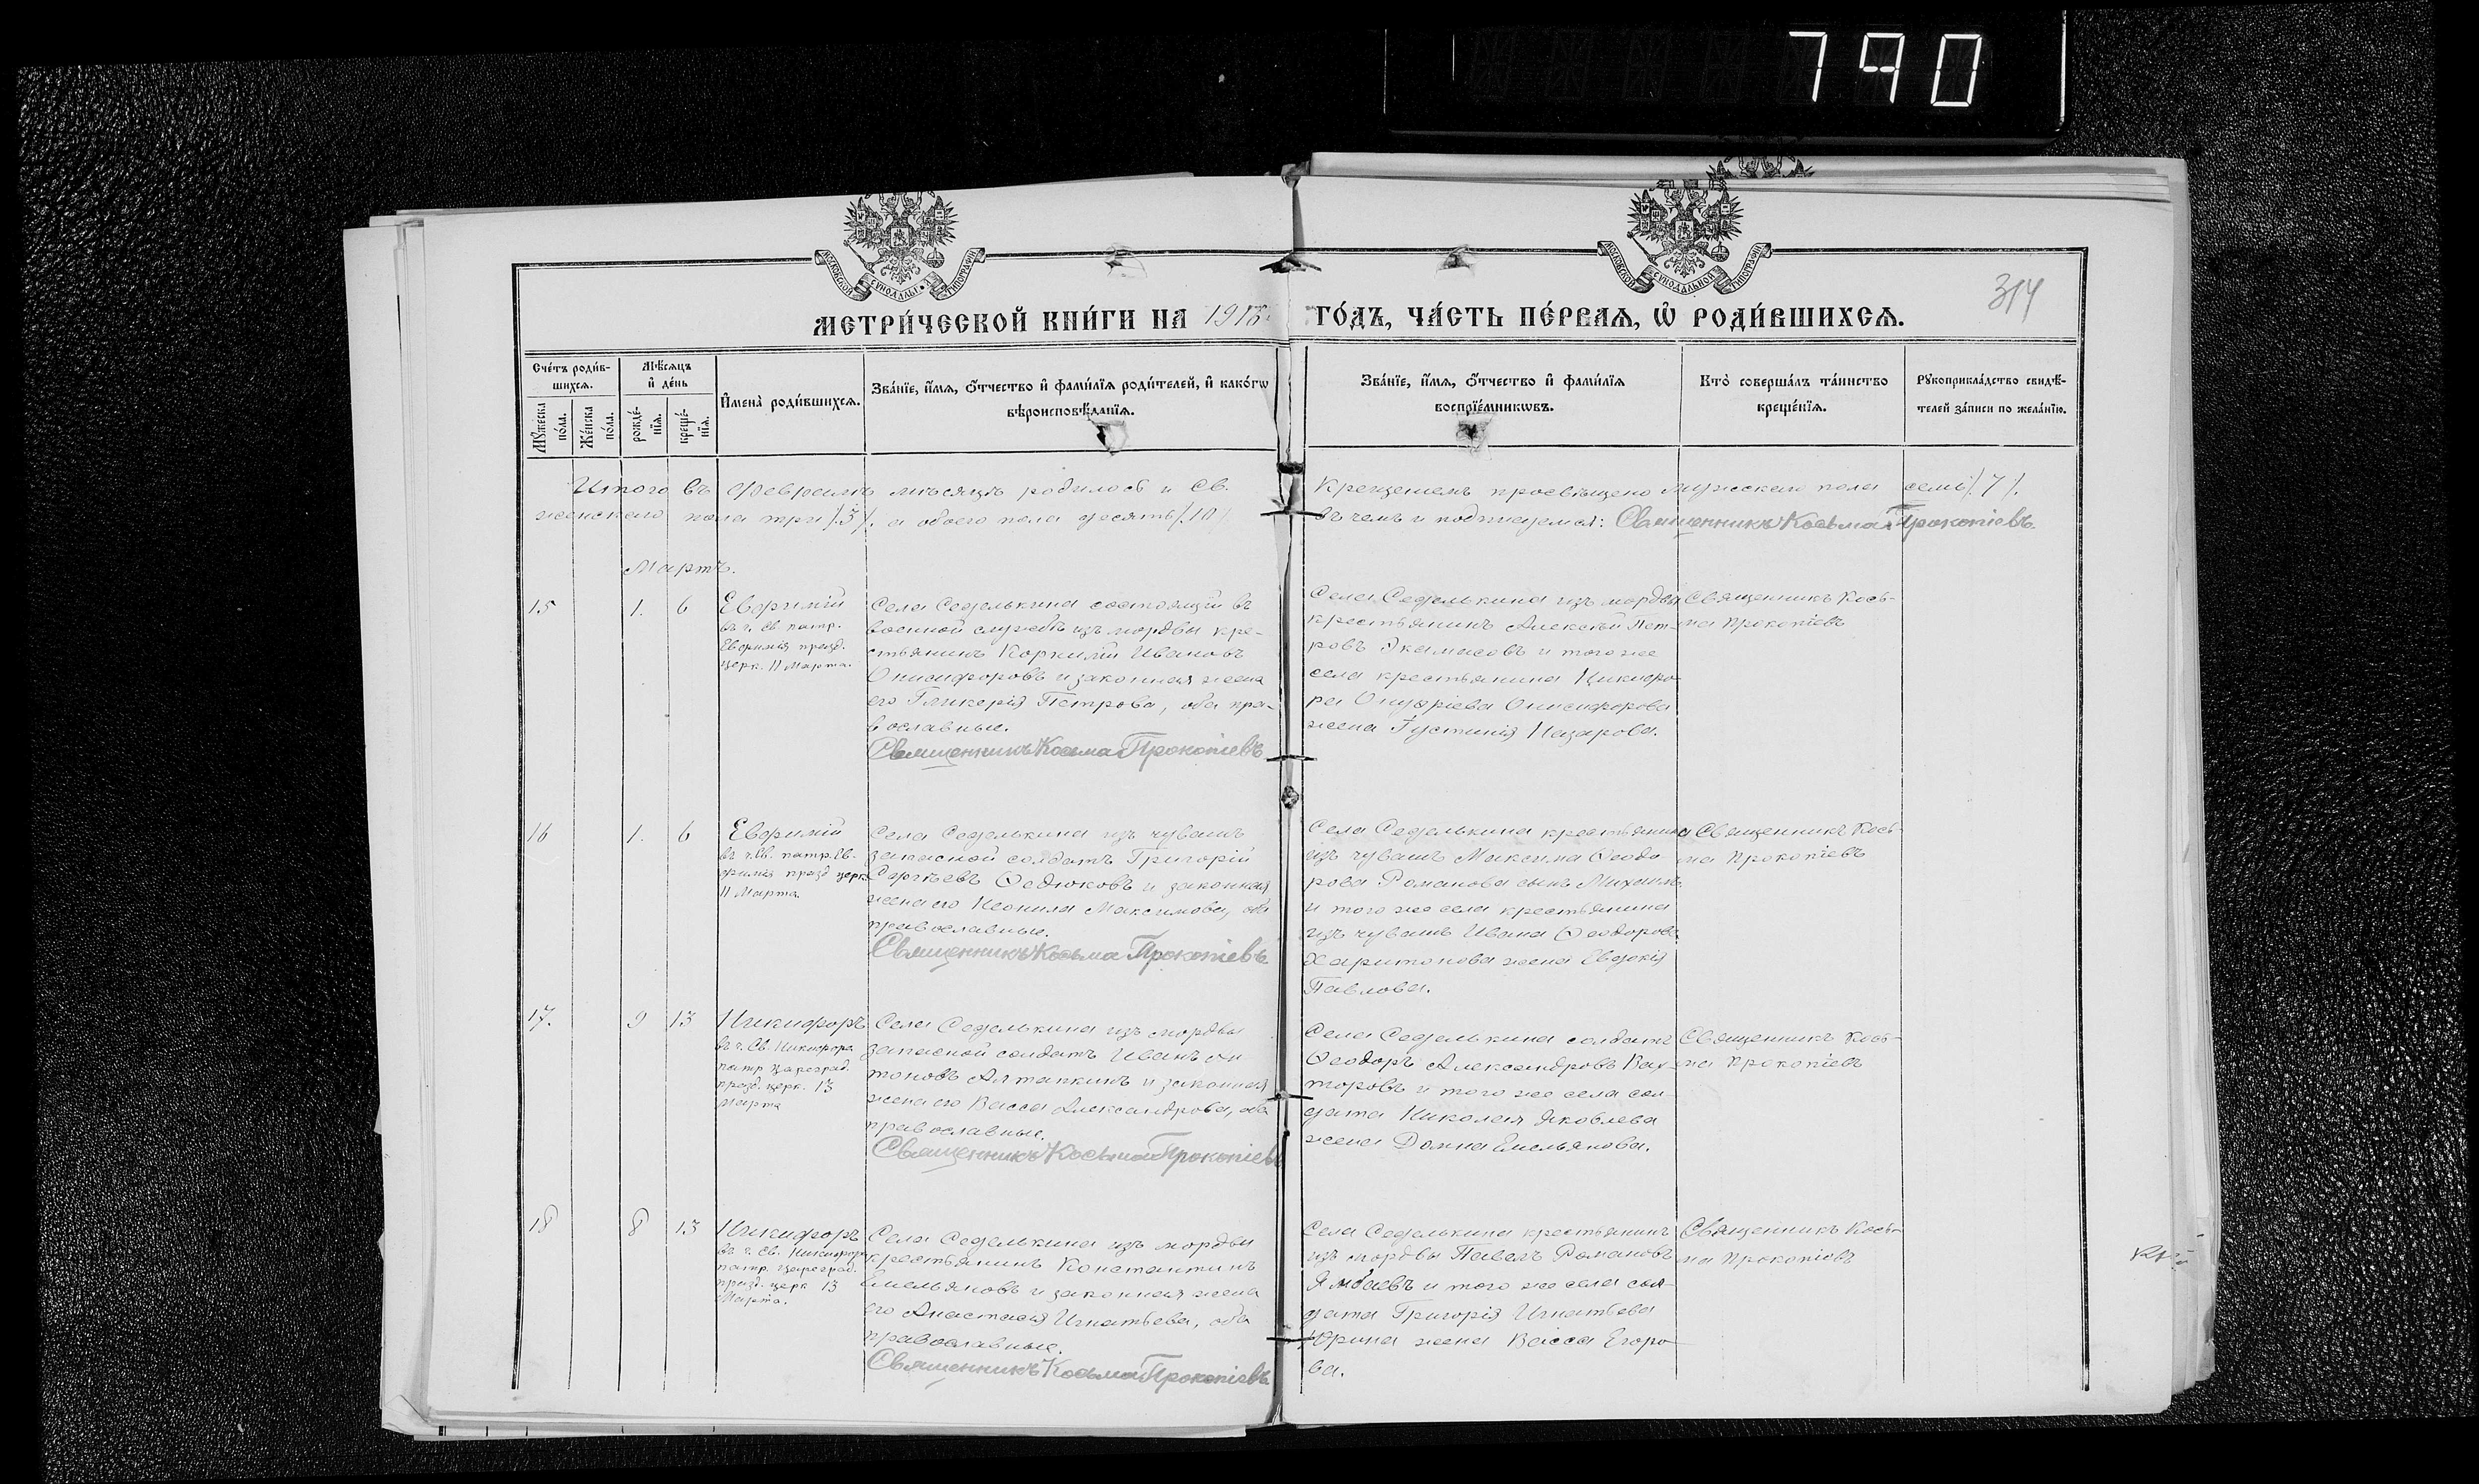 790
МОСКОВСКОЙ СѴНОДАЛЬНОЙ ТИПОГРАФІИ
МОСКОВСКОЙ СѴНОДАЛЬНОЙ ТИПОГРАФІИ
314
МЕТРИ́ЧЕСКОЙ КНИ́ГИ НА
ГО́ДЪ, ЧА́СТЬ ПЕ́РВАЯ, Ѡ҆ РОДИ́ВШИХСЯ.
Сче́тъ роди́в-
шихся.
Мѣ́сяцъ
и҆ де́нь
Мꙋ́жеска
по́ла.
Же́нска
по́ла.
рожде́-
нїя.
креще́-
нїя.
И҆мена̀ роди́вшихся.
Зва́нїе, и҆́мя, ѻ҆́тчество и҆ фами́лїя роди́телей, и҆ како́гѡ
вѣроисповѣ́данїя.
Зва́нїе, и҆́мя, ѻ҆́тчество и҆ фами́лїя
воспрїе́мникѡвъ.
Кто̀ соверша́лъ та́инство
креще́нїя.
Рꙋкоприкла́дство свидѣ́-
телей за́писи по жела́нїю.
Итого въ Февралѣ мѣсяцѣ родилось и Св. крещеніемъ просвѣщено мужескаго пола семь /7/.
женскаго пола три /3/. а обоего пола десять /10/ въ чемъ и подписуемся: Священникъ Косьма Прокопіевъ.
Мартъ.
15
1.
6
Евфимій
въ ч. св. патр.
Евфимія празд.
церк. 11 Марта.
Села Седелькина состоящій въ
военной службѣ изъ мордвы кре-
стьянинъ Корнилій Ивановъ
Онисифоровъ и законная жена
его Гликерія Петрова, оба пра-
вославные.
Священникъ Косьма Прокопіевъ
Села Седелькина изъ мордвы
крестьянинъ Алексѣй Пет-
ровъ Экамасовъ и того же
села крестьянина Никифо-
ра Онуфріева Онисифорова
жена Густинія Назарова.
Священникъ Кось-
ма Прокопіевъ
16
1.
6
Евфимій
въ ч. Св. патр. Ев-
фимія празд. церк.
11 Марта.
Села Седелькина изъ чувашъ
запасной солдатъ Григорій
Сергѣевъ Ѳедюковъ и законная
жена его Неонила Максимова, оба
православные.
Священникъ Косьма Прокопіевъ
Села Седелькина крестьянина
изъ чувашъ Максима Ѳеодо-
рова Романова сынъ Михаилъ
и того же села крестьянина
изъ чувашъ Ивана Ѳеодорова
Харитонова жена Евдокія
Павлова.
Священникъ Кось-
ма Прокопіевъ
17.
9
13
Никифоръ
въ ч. Св. Никифора
патр. Цареград.
празд. церк. 13
Марта
Села Седелькина изъ мордвы
запасной солдатъ Иванъ Ан-
тоновъ Алтапкинъ и законная
жена его Васса Александрова, оба
православные.
Священникъ Косьма Прокопіевъ
Села Седелькина солдатъ
Ѳеодоръ Александровъ Вах-
торовъ и того же села сол-
дата Николая Яковлева
жена Домна Емельянова.
Священникъ Кось-
ма Прокопіевъ
18
8
13
Никифоръ
въ ч. Св. Никифора
патр. Цареград.
празд. церк. 13
Марта.
Села Седелькина изъ мордвы
крестьянинъ Константинъ
Емельяновъ и законная жена
его Анастасія Игнатьева, оба
православные.
Священникъ Косьма Прокопіевъ
Села Седелькина крестьянинъ
изъ мордвы Павелъ Романовъ
Ямбаевъ и того же села сол-
дата Григорія Игнатьева
Юрина жена Васса Егоро-
ва.
Священникъ Кось-
ма Прокопіевъ